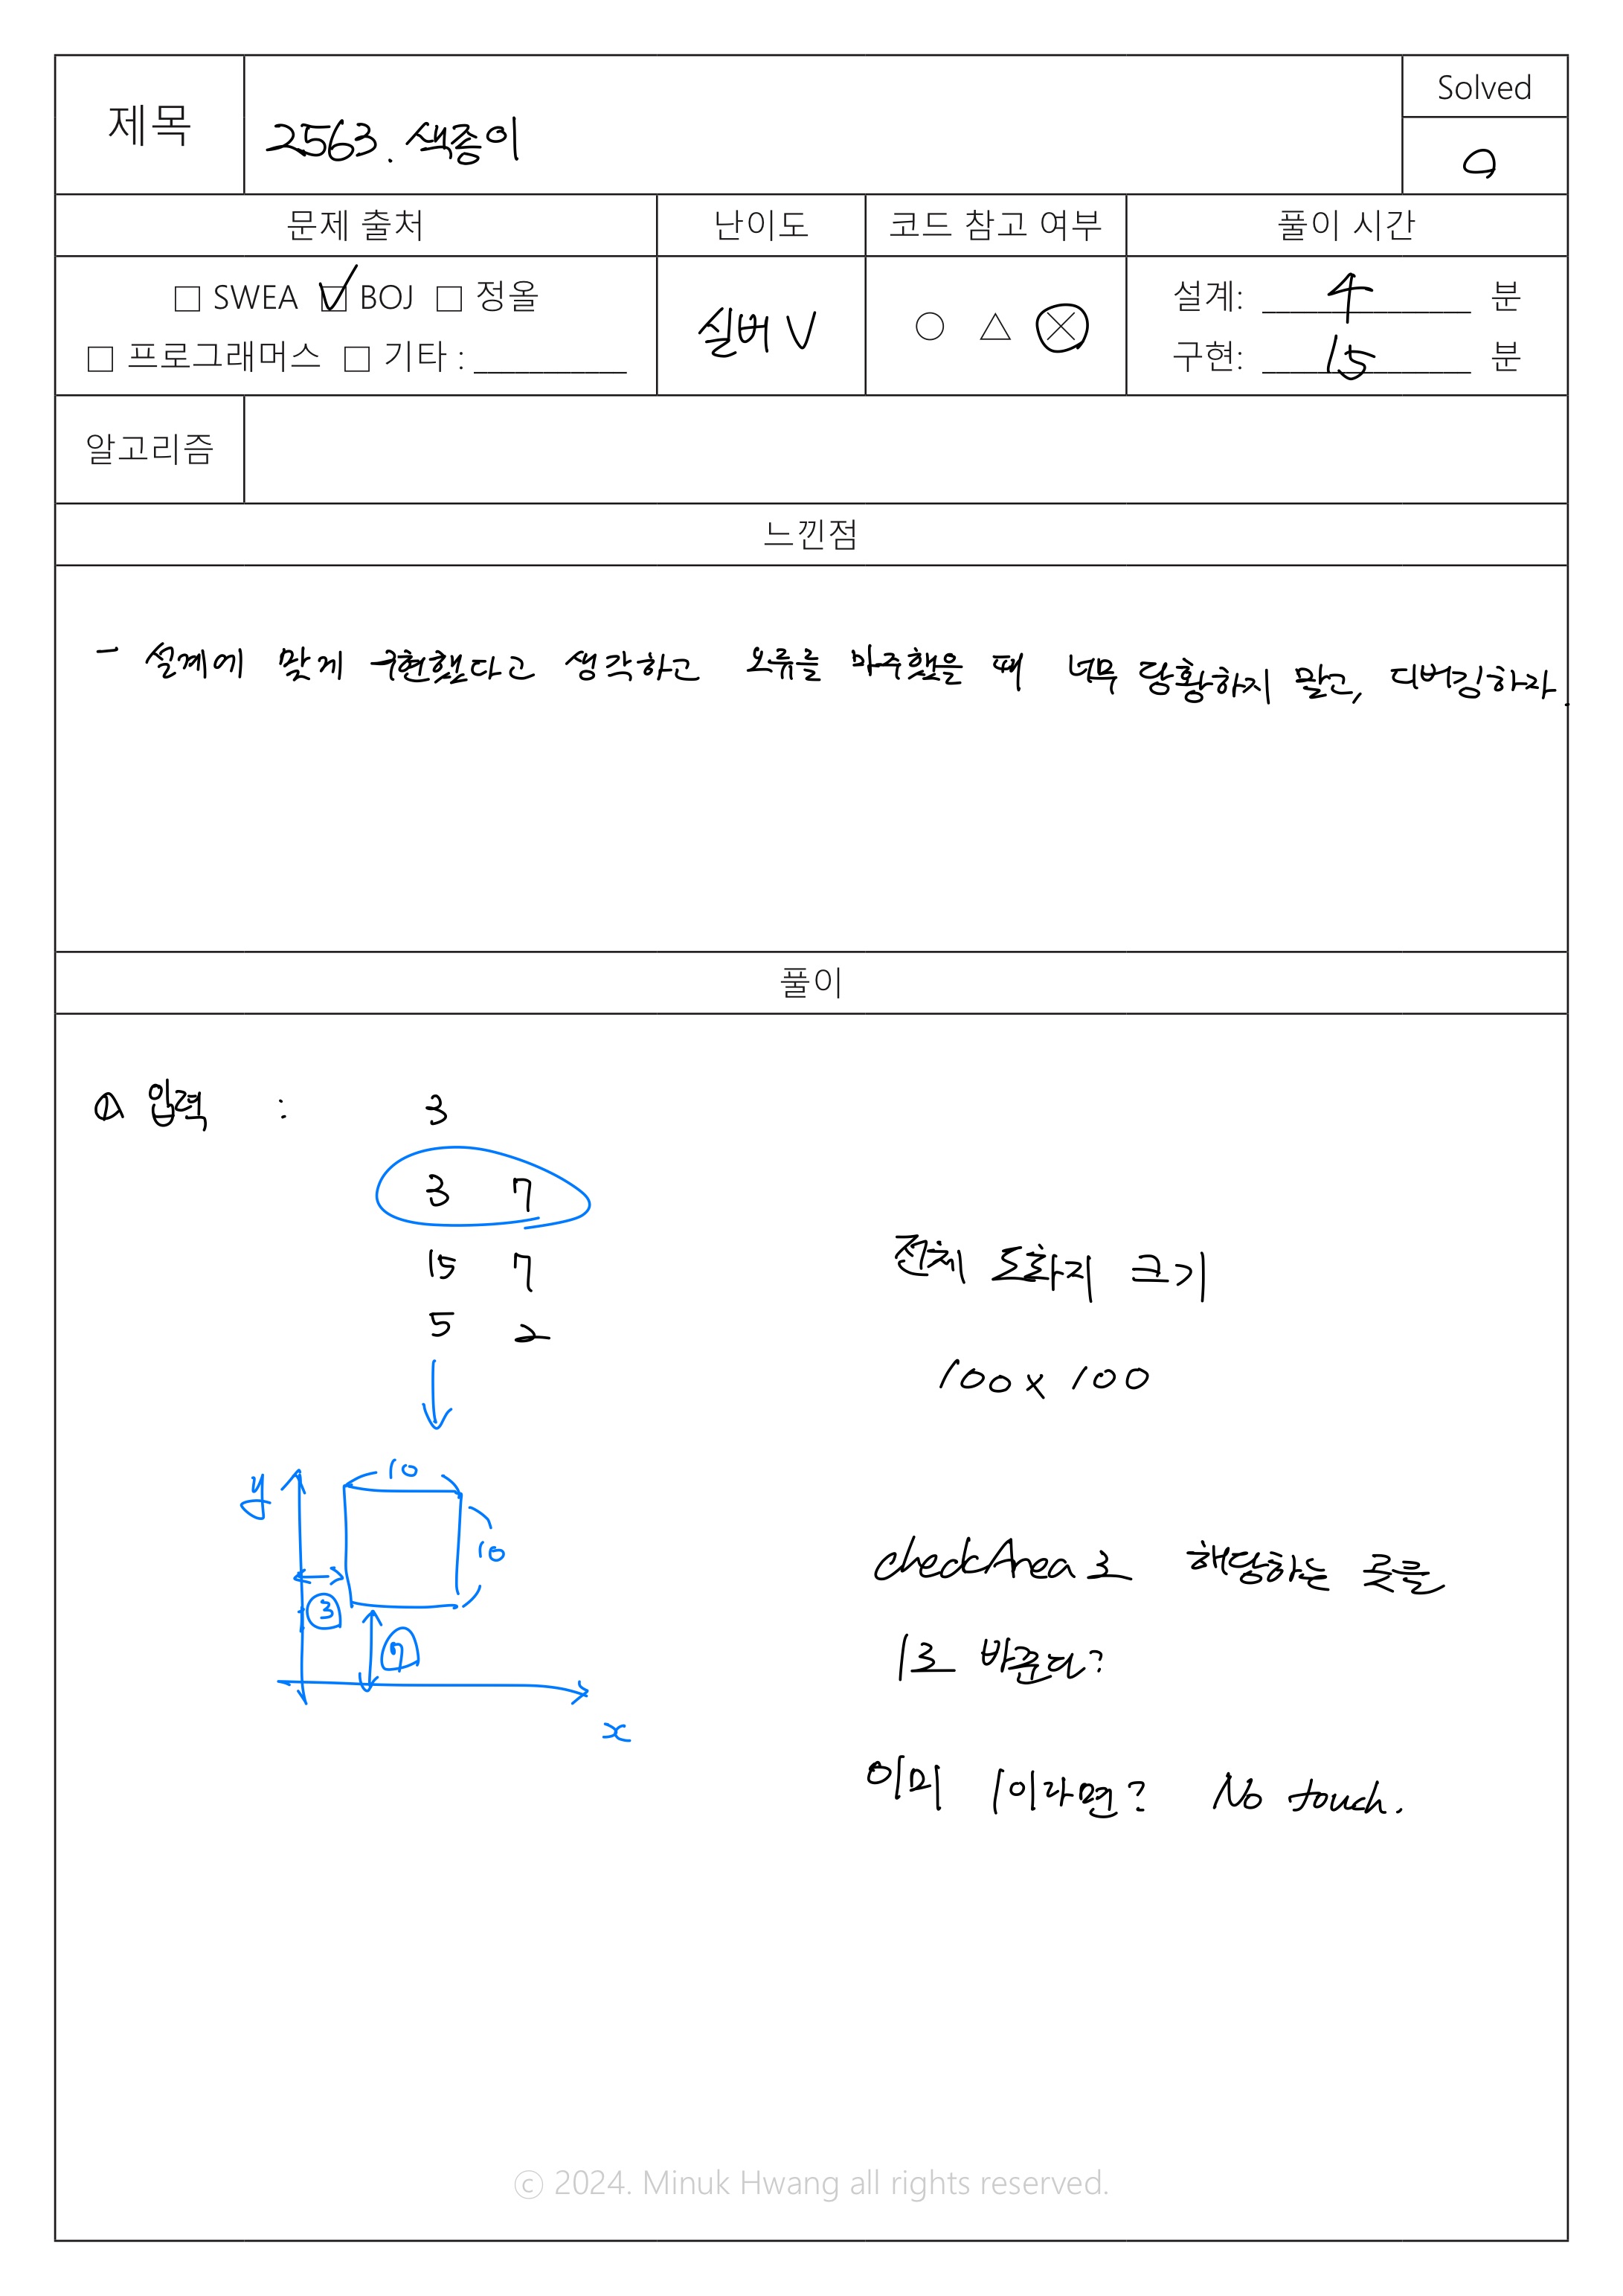 제목
2563. 색종이
Solved
O
문제 출처
난이도
코드 참고 여부
풀이 시간
□ SWEA ☑ BOJ □ 정올
□ 프로그래머스 □ 기타 : ___________
실버 V
○ △ ╳
설계: 4 분
구현: 15 분
알고리즘
느낀점
- 설계에 맞게 구현했다고 생각하고 오류를 마주했을 때 너무 당황하지 말고, 디버깅하자.
풀이
① 입력 : 3
3 7
15 7
5 2
전체 도화지 크기
100 x 100
y
10
10
3
7
x
checkArea로 해당하는 곳을
1로 바꾼다?
이미 1이라면? No touch.
ⓒ 2024. Minuk Hwang all rights reserved.